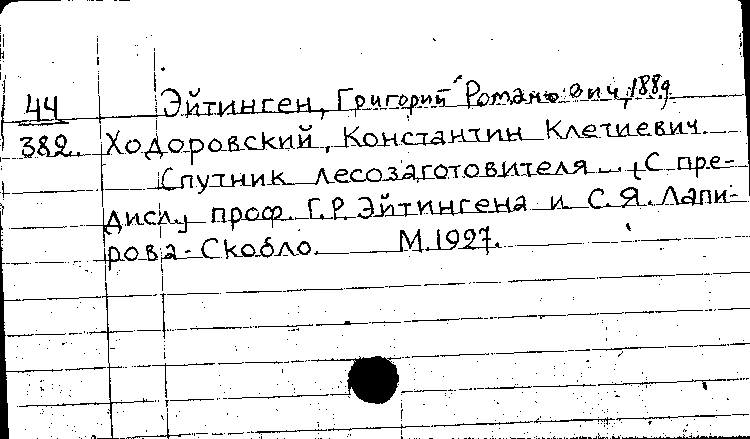 44 Эйтинген, Григорий Романович, 1889
382. Ходоровский, Константин Клетиевич.
Спутник лесозаготовителя... (С пре-
дисл. проф. Г.Р. Эйтингена и С.Я. Лапи-
рова-Скобло. М.1927.